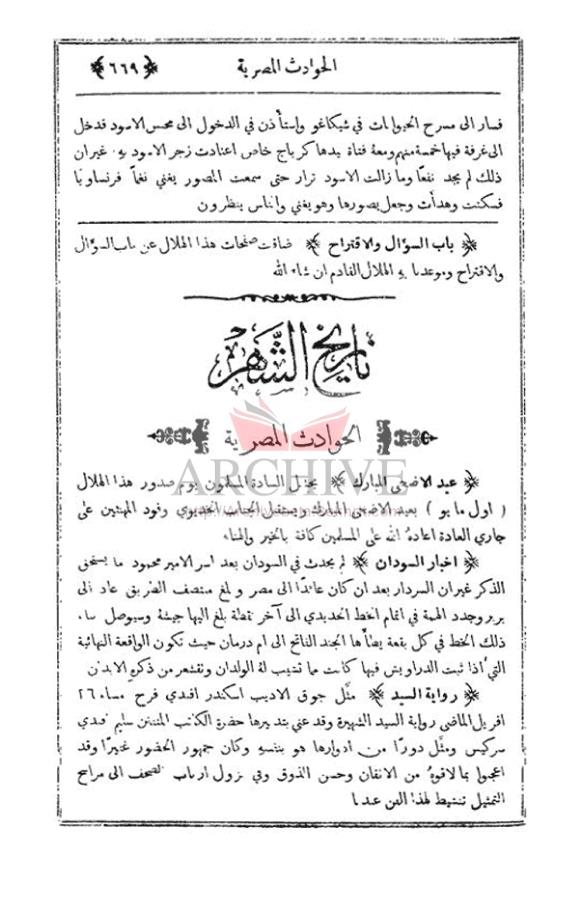 الحوادث المصرية ﴿٦٦٩﴾
فسار الى مسرح الحيوانات في شيكاغو واستأذن في الدخول الى محبس الاسود فدخل
الى غرفة فيها خمسة منهم ومعهُ فتاة بيدها كرباج خاص اعتادت زجر الاسود بهِ. غير ان
ذلك لم يجد نفعًا وما زالت الاسود تزأر حتى سمعت المصور يغني نغمًا فرنساويًا
فسكنت وهدأت وجعل يصورها وهو يغني والناس ينظرون
﴿ باب السؤال والاقتراح ﴾ ضاقت صفحات هذا الهلال عن باب السؤال
والاقتراح وموعدنا بهِ الهلال القادم ان شاء الله
تاريخ الشهر
الحوادث المصرية
ARCHIVE
﴿ عيد الاضحى المبارك ﴾ يحتفل السادة المسلمون يوم صدور هذا الهلال
( اول مايو ) بعيد الاضحى المبارك ويستقبل الجناب الخديوي وفود المهنئين على
جاري العادة اعادهُ الله على المسلمين كافة بالخير والهناء
﴿ اخبار السودان ﴾ لم يحدث في السودان بعد اسر الامير محمود ما يستحق
الذكر غير ان السردار بعد ان كان عائدًا الى مصر وبلغ منتصف الطريق عاد الى
بربر وجدد الهمة في اتمام الخط الحديدي الى آخر نقطة بلغ اليها جيشهُ وسيوصل بناء
ذلك الخط في كل بقعة يطأها الجند الفاتح الى ام درمان حيث تكون الواقعة النهائية
التي اذا ثبت الدراويش فيها كانت مما تشيب لهُ الولدان وتقشعر من ذكرهِ الابدان
﴿ رواية السيد ﴾ مثَّل جوق الاديب اسكندر افندي فرح مساء ٢٦
افريل الماضي رواية السيد الشهيرة وقد عني بتدبيرها حضرة الكاتب المتفنن سليم افندي
سركيس ومثَّل دورًا من ادوارها هو بنفسهِ وكان جمهور الحضور غفيرًا وقد
اعجبوا بما لاقوهُ من الاتقان وحسن الذوق وفي نزول ارباب الصحف الى مراسح
التمثيل تنشيط لهذا الفن عندنا